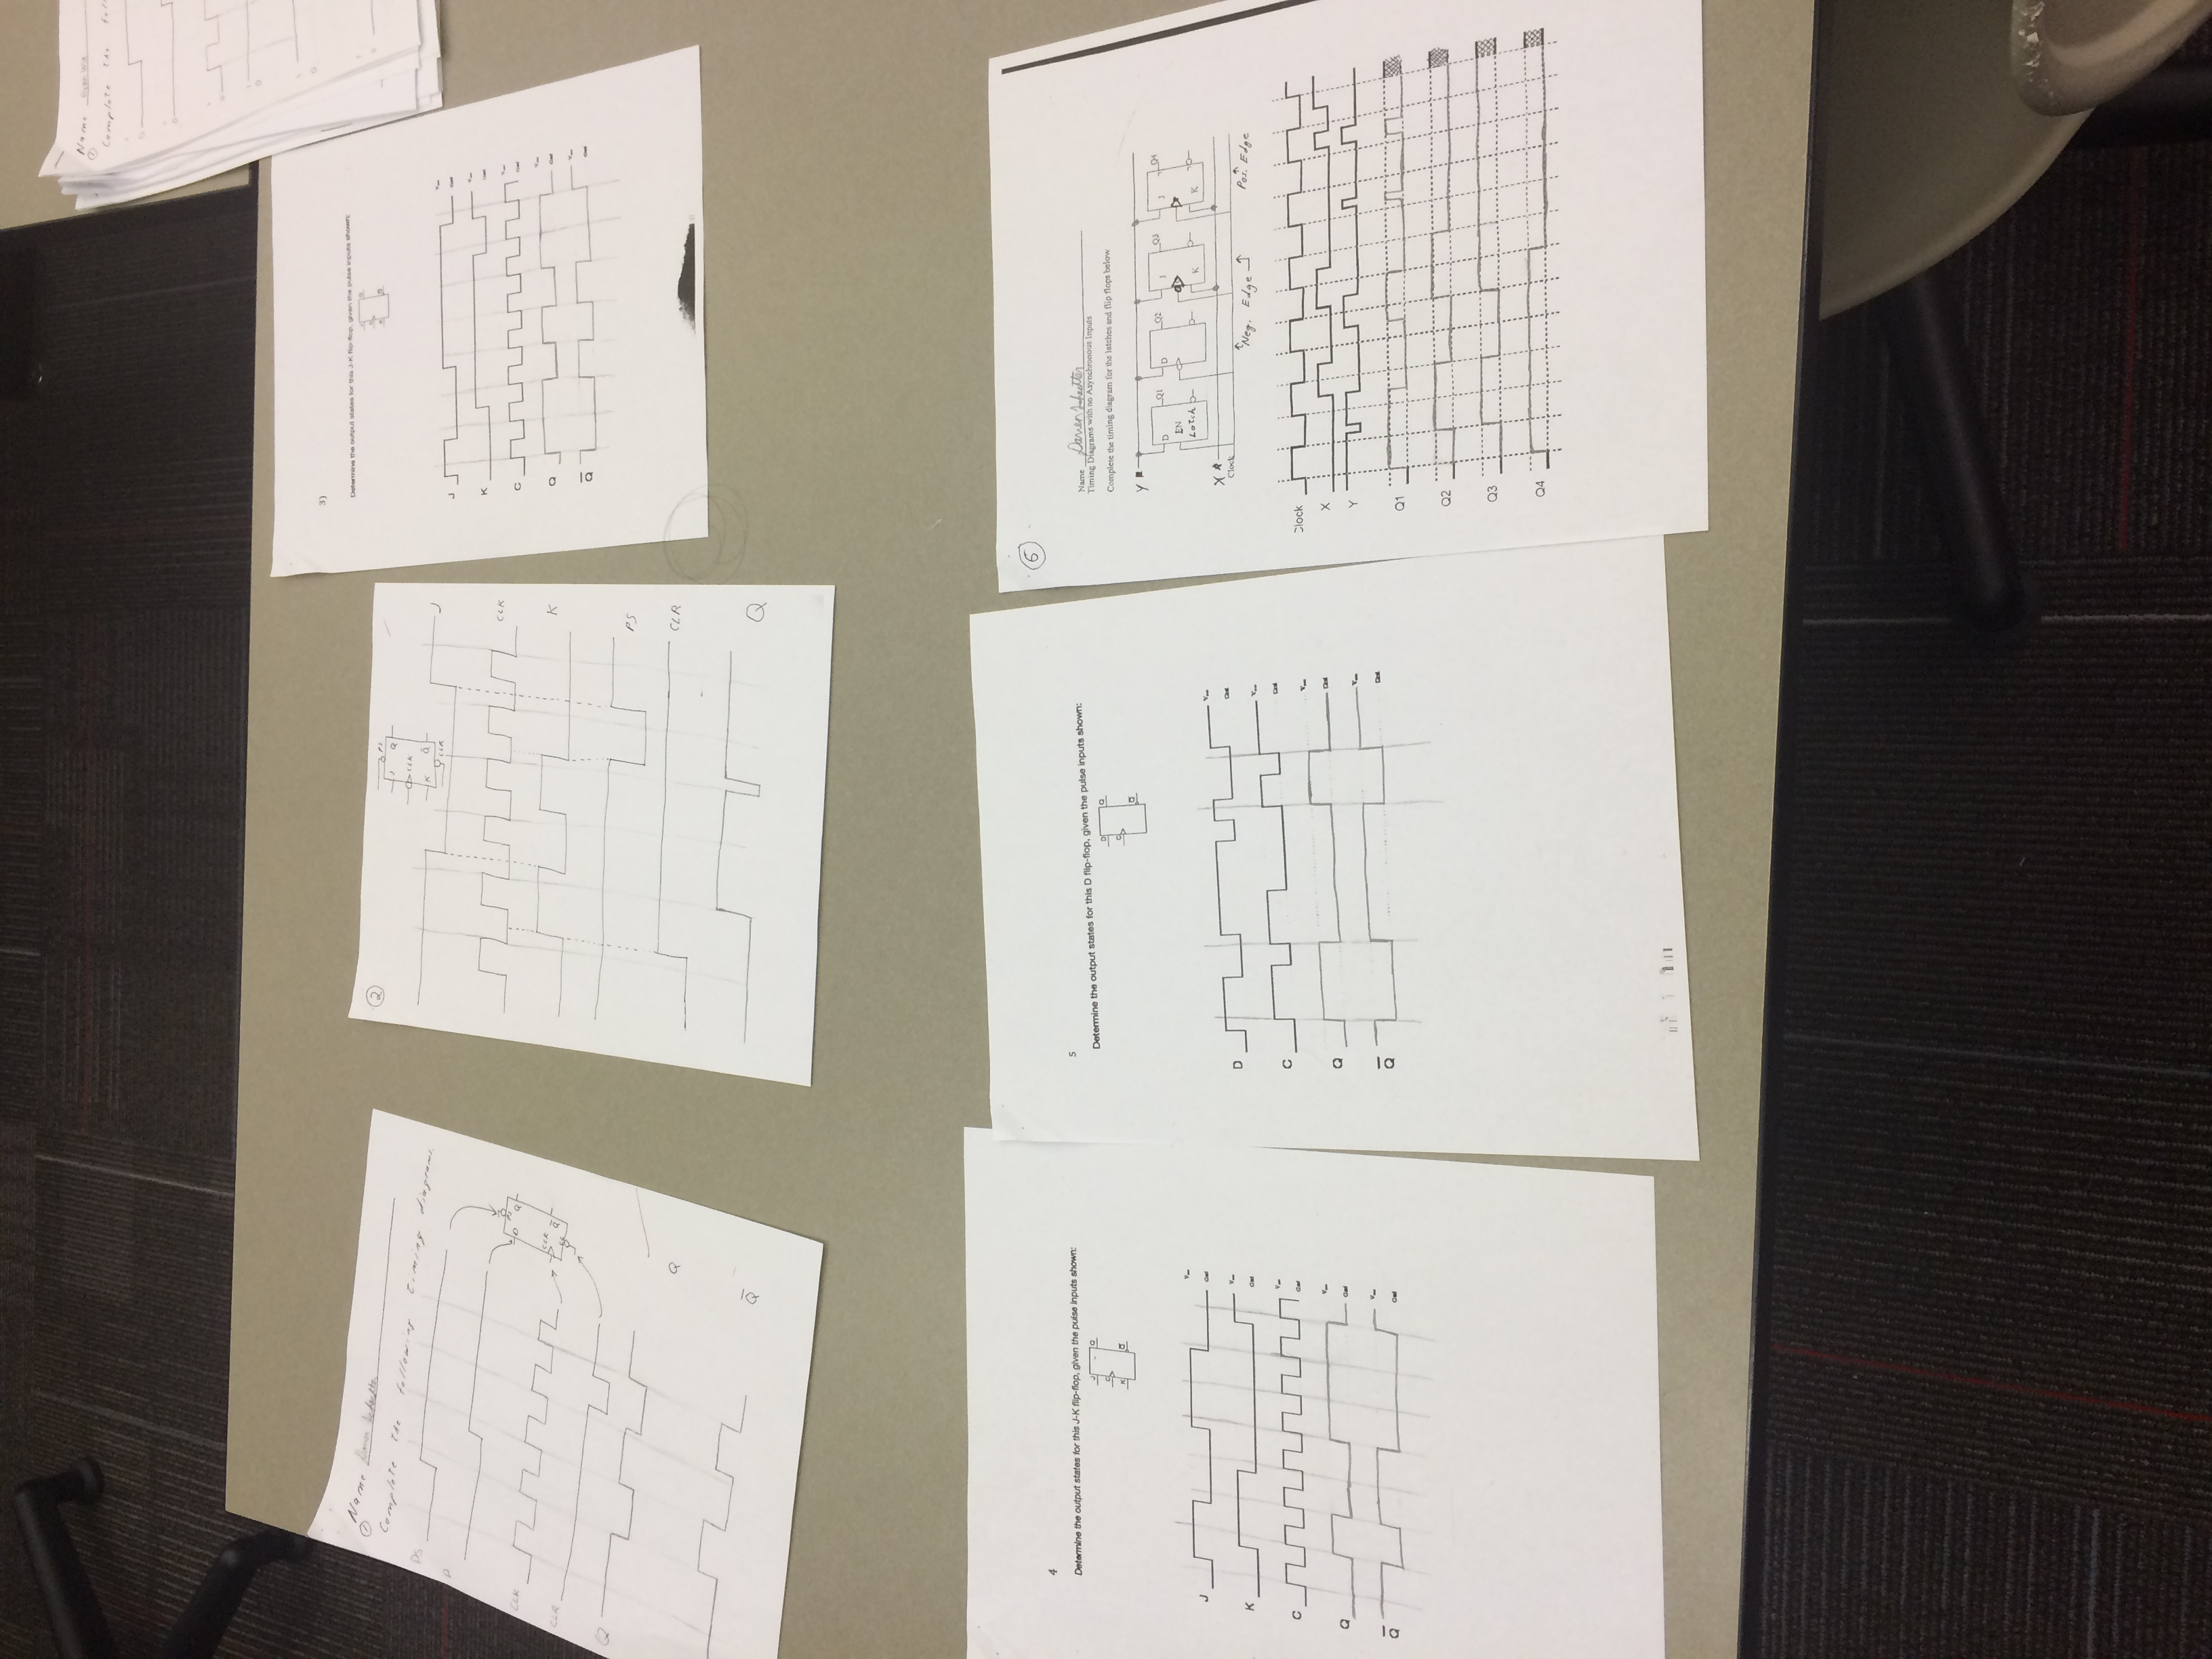 Name
①
Complete the following timing diagrams.
PS
D
CLK
CLR
Q
Q̅
D PS Q
CLK Q̅
Q
Q̅
②
PS
J Q
CLK
K Q̅
CLR
J
CLK
K
PS
CLR
Q
3)
Determine the output states for this J-K flip-flop, given the pulse inputs shown:
J
K
C
Q
Q̅
Name
①
Complete the
4
Determine the output states for this J-K flip-flop, given the pulse inputs shown:
J Q
C
K Q̅
J
K
C
Q
Q̅
5
Determine the output states for this D flip-flop, given the pulse inputs shown:
D Q
C
Q̅
D
C
Q
Q̅
6
Name Darren
Timing Diagrams with no Asynchronous Inputs
Complete the timing diagram for the latches and flip flops below
Y
D Q1 D Q2 J Q3 J Q4
EN
Latch K K
X
Clock
Neg. Edge Pos. Edge
Clock
X
Y
Q1
Q2
Q3
Q4